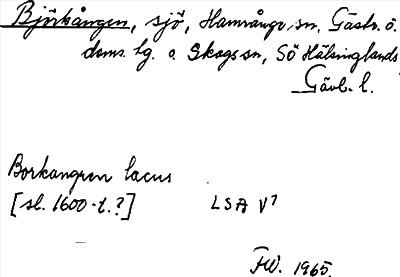 Björkången, sjö, Hamrånge sn, Gästr. ö.
doms. lg. o. Skogs sn, Sö Hälsinglands
Gävl. l.
Borkangren lacus
[sl. 1600-t.?] LSA V7
FW. 1965.